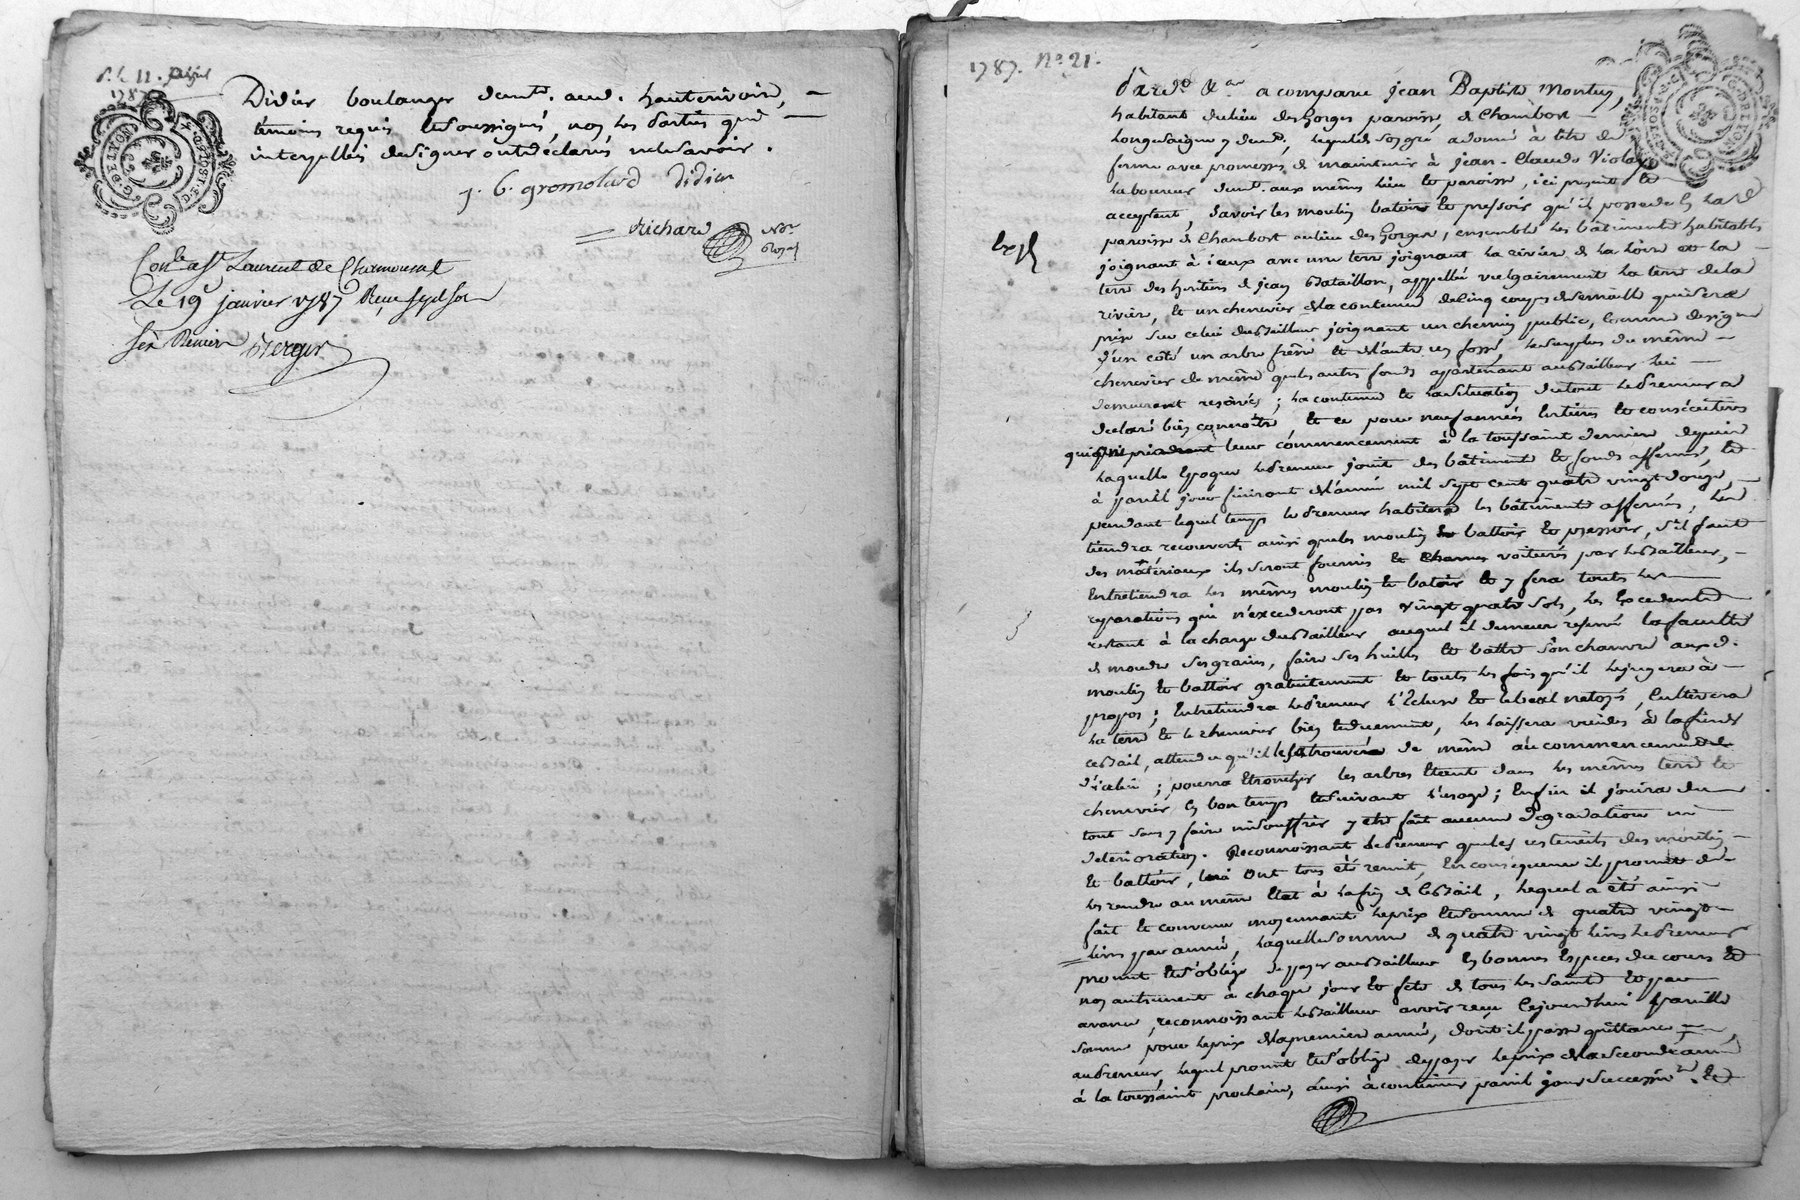 1787
G. DE LYON
Didier boulanger demt. aud. hauterivoire,
temoins requis et soussignés, non les parties qui
interpellés de signer ont déclaré ne le savoir.
j. b. gromolard Didier
Richard
Con.le a St Laurent de Chamousset
Le 19 janvier 1787 Reçu sept sols
six deniers Berger
1787. No. 21.
Par de. &ar a comparu jean Baptiste Montuy,
habitant du lieu des Gorges paroisse de Chambost
Longesaigne y demt., lequel de son gré a donné à titre de
ferme avec promesses de maintenir à jean-Claude Violay
laboureur demt. aux mêmes lieu et paroisse, ici present et
acceptant, savoir les moulin batoir et pressoir qu'il possede en lad.
paroisse de Chambost au lieu des Gorges, ensemble les bâtiments habitables
joignant à iceux avec une terre joignant la riviere de la Loire et la
terre des heritiers de jean Bataillon, appellée vulgairement la terre de la
riviere, et un chenevier de la contenue de cinq coupes de semaille qui sera
prise sur celui du Bailleur joignant un chemin public, comme designé
d'un côté un arbre frêne et de l'autre un fossé, le surplus du même
chenevier de même que les autres fonds appartenant au Bailleur lui
demeurent reservés; la contenue et la situation du tout le Preneur a
declaré bien connoître, et ce pour neuf années entieres et consécutives
qui ont pris leur commencement à la toussaint derniere, depuis
laquelle epoque le Preneur jouit des bâtiments et fonds affermés, et
à pareil jour finiront de l'année mil sept cent quatre vingt douze,
pendant lequel temps le Preneur habitera les bâtiments affermés, les
tiendra recouverts ainsi que les moulin battoir et pressoir, s'il faut
des matériaux ils seront fournis et voiturés par le Bailleur,
Entretiendra les mêmes moulin et batoir et y fera toutes les
reparations qui n'excederont pas vingt quatre sols, les excedentes
restant à la charge du Bailleur auquel il demeure reservé la faculté
de moudre ses grains, faire ses huilles et battre son chanvre aux d.
moulin et battoir gratuitement et toutes les fois qu'il le jugera à
propos; Entretiendra le Preneur l'Ecluse et le beal netoyés, Cultivera
la terre et le chenevier bien et duement, les laissera vuides à la fin de
ce Bail, attendu qu'il les a trouvés de même au commencement
d'icelui; pourra etroncher les arbres etant dans les mêmes terre et
chenevier en bon temps et suivant l'usage; Enfin il jouira du
tout sans y faire ni souffrir y etre fait aucune degradation ni
deterioration. Reconnoissant le Preneur que les ustensiles des moulin
et battoir, lui ont tous été remis, en consequence il promet de
les rendre au même Etat à la fin de ce Bail, lequel a été ainsi
fait et convenu moyennant le prix et somme de quatre vingt
livres par année, laquelle somme de quatre vingt livres le Preneur
promet et s'oblige de payer au Bailleur en bonnes Especes du cours et
non autrement à chaque jour et fete de tous les Saints et par
avance, reconnoissant le Bailleur avoir reçu cejourd'hui pareille
somme pour le prix de la premiere année, dont il passe quittance
au Preneur, lequel promet et s'oblige de payer le prix de la seconde année
à la toussaint prochaine, ainsi à continuer pareil jour successivt. et